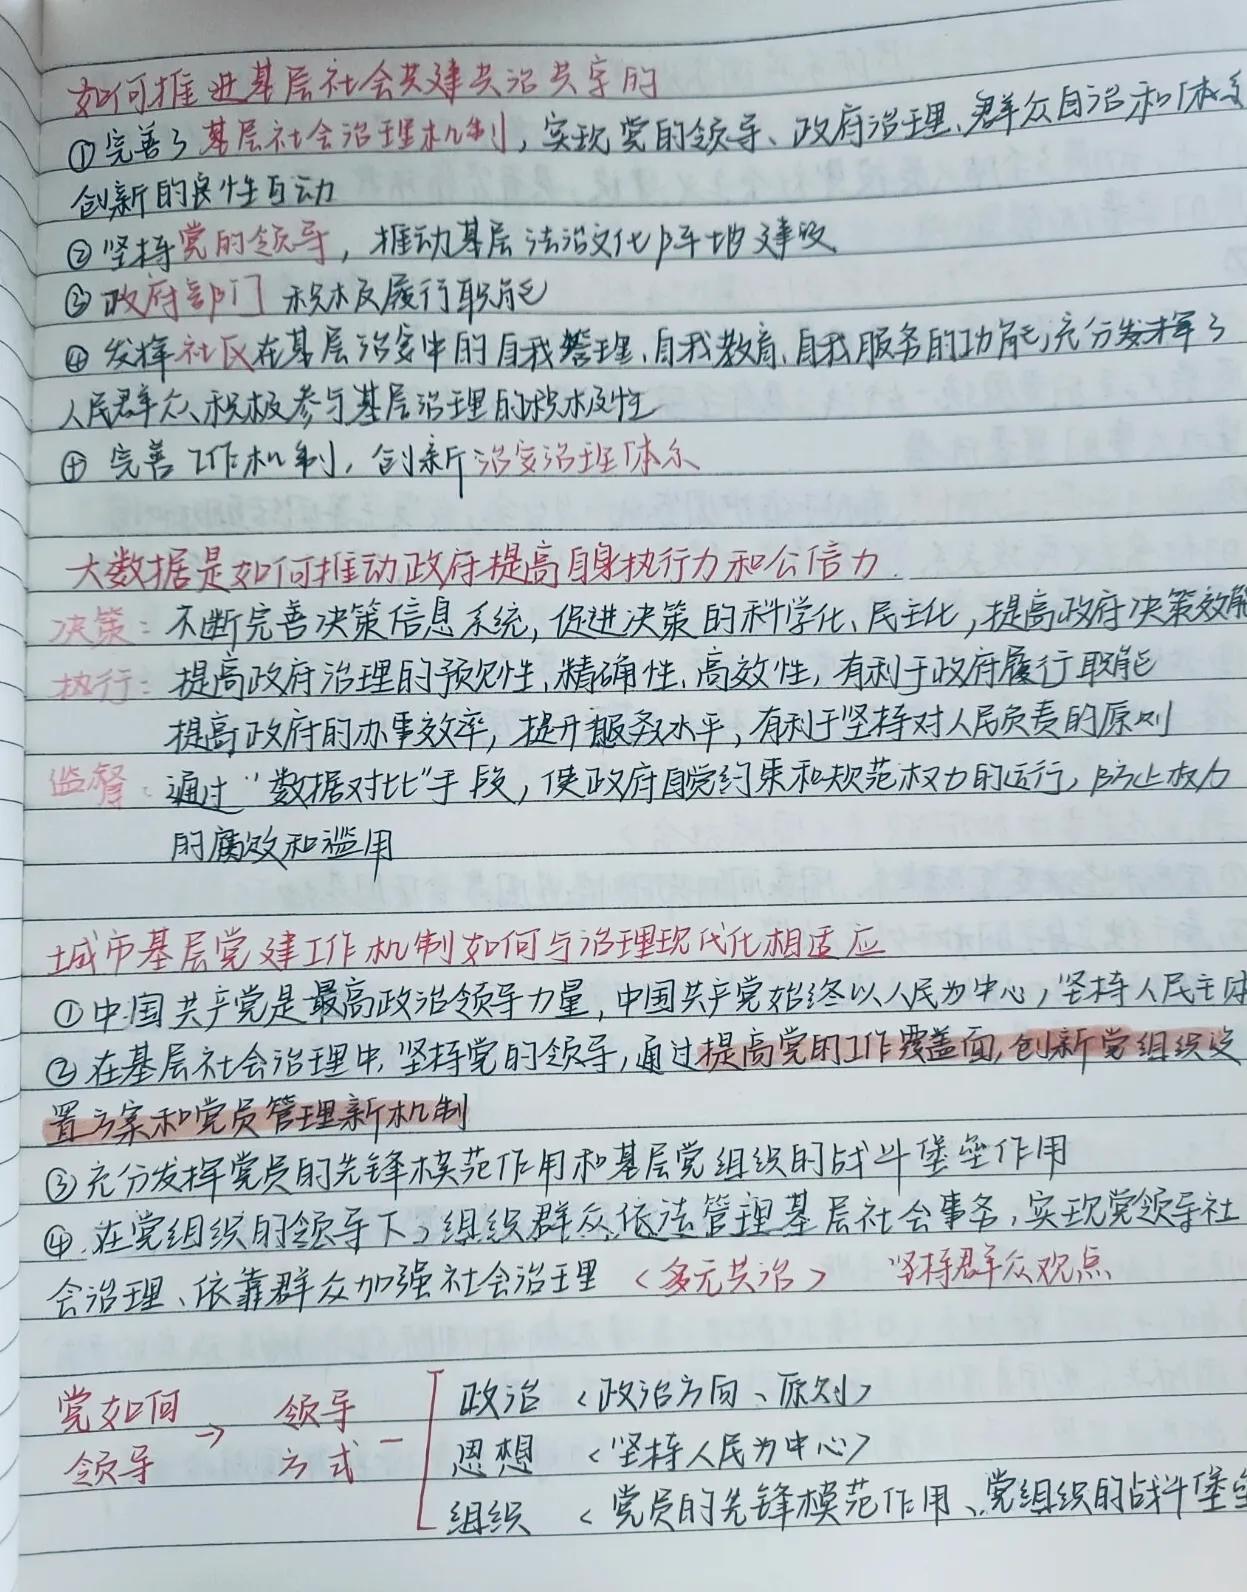 如何推进基层社会共建共治共享的
①完善了基层社会治理机制，实现党的领导、政府治理、群众自治和体系
创新的良性互动
②坚持党的领导，推动基层法治文化阵地建设
③政府部门 积极履行职能
④发挥社区在基层治安中的自我管理、自我教育、自我服务的功能，充分发挥了
人民群众积极参与基层治理的积极性
⊕ 完善工作机制，创新治安治理体系
大数据是如何推动政府提高自身执行力和公信力.
决策：不断完善决策信息系统，促进决策的科学化、民主化，提高政府决策效能
执行：提高政府治理的预见性、精确性、高效性，有利于政府履行职能
提高政府的办事效率，提升服务水平，有利于坚持对人民负责的原则
监督：通过“数据对比”手段，使政府自觉约束和规范权力的运行，防止权力
的腐败和滥用
城市基层党建工作机制如何与治理现代化相适应
①中国共产党是最高政治领导力量，中国共产党始终以人民为中心，坚持人民主体
②在基层社会治理中，坚持党的领导，通过提高党的工作覆盖面，创新党组织设
置方案和党员管理新机制
③充分发挥党员的先锋模范作用和基层党组织的战斗堡垒作用
④.在党组织的领导下，组织群众依法管理基层社会事务，实现党领导社
会治理、依靠群众加强社会治理〈多元共治〉 坚持群众观点
党如何 → 领导 — 政治〈政治方向、原则〉
领导 方式 思想〈坚持人民为中心〉
组织〈党员的先锋模范作用、党组织的战斗堡垒